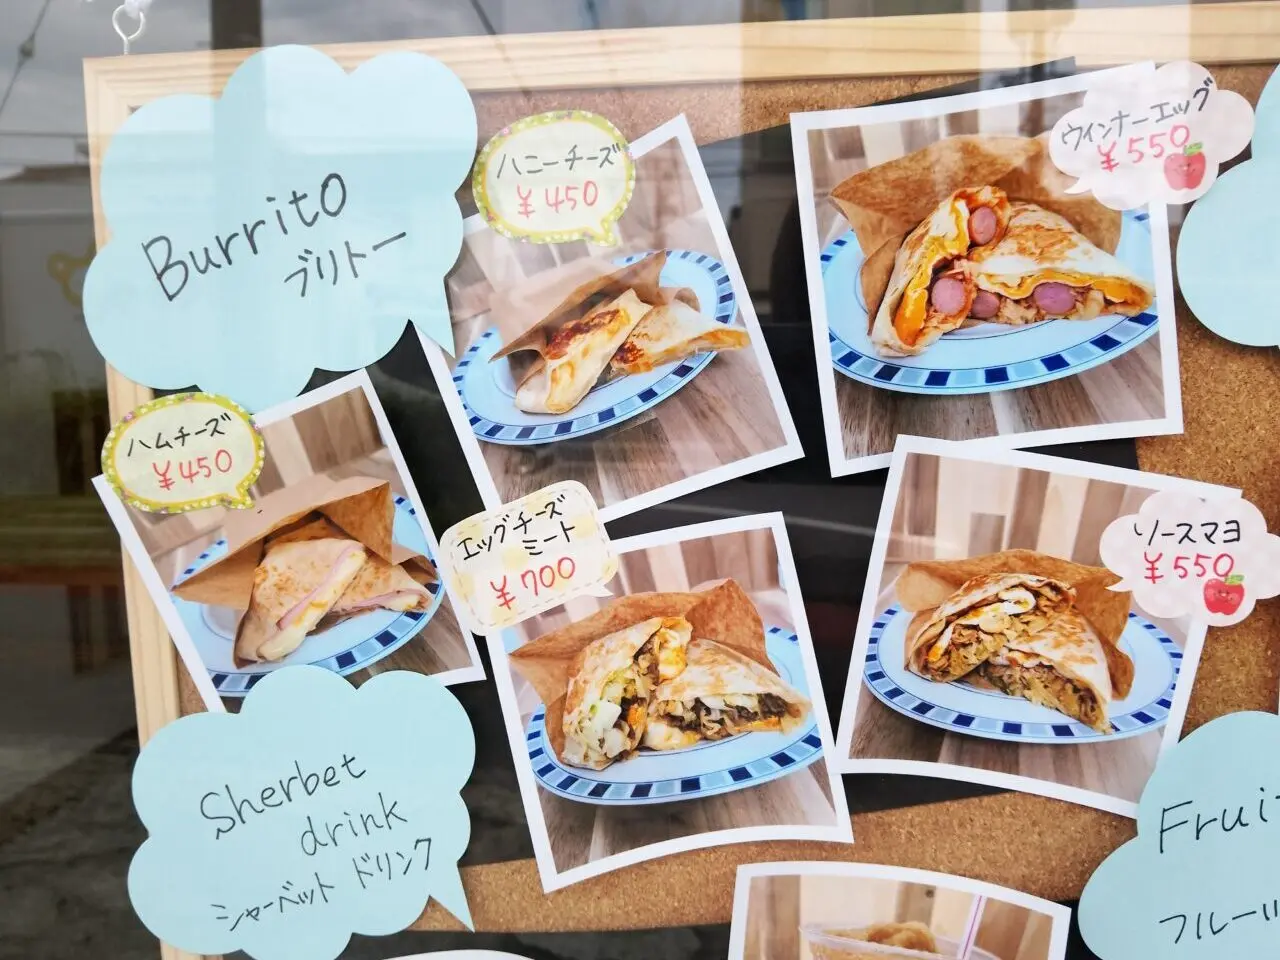 Burrito
ブリトー
ハニーチーズ
¥450
ウインナーエッグ
¥550
ハムチーズ
¥450
エッグチーズ
ミート
¥700
ソースマヨ
¥550
Sherbet
drink
シャーベット ドリンク
Frui
フルーツ